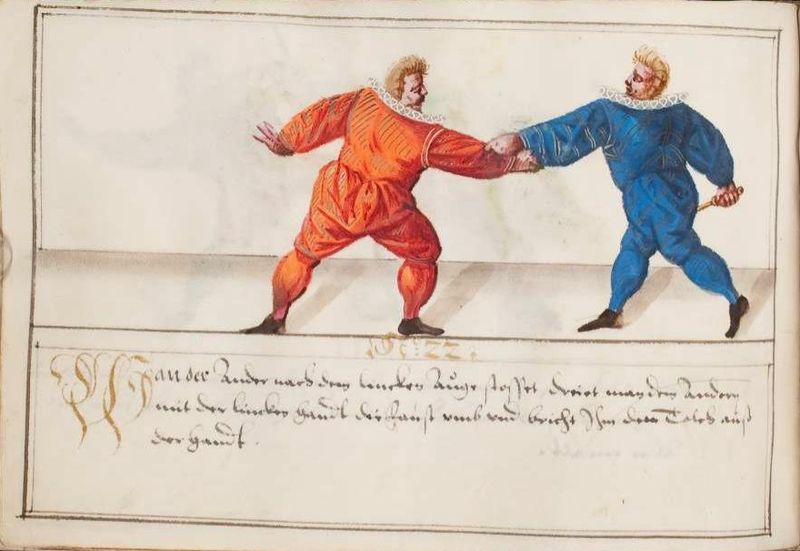 No: 22.
Wan der Ander nach dem lincken Auge stosset, dreiet man dem Andern
mit der lincken handt die faust umb und bricht Ihm den Tolch auß
der handt.